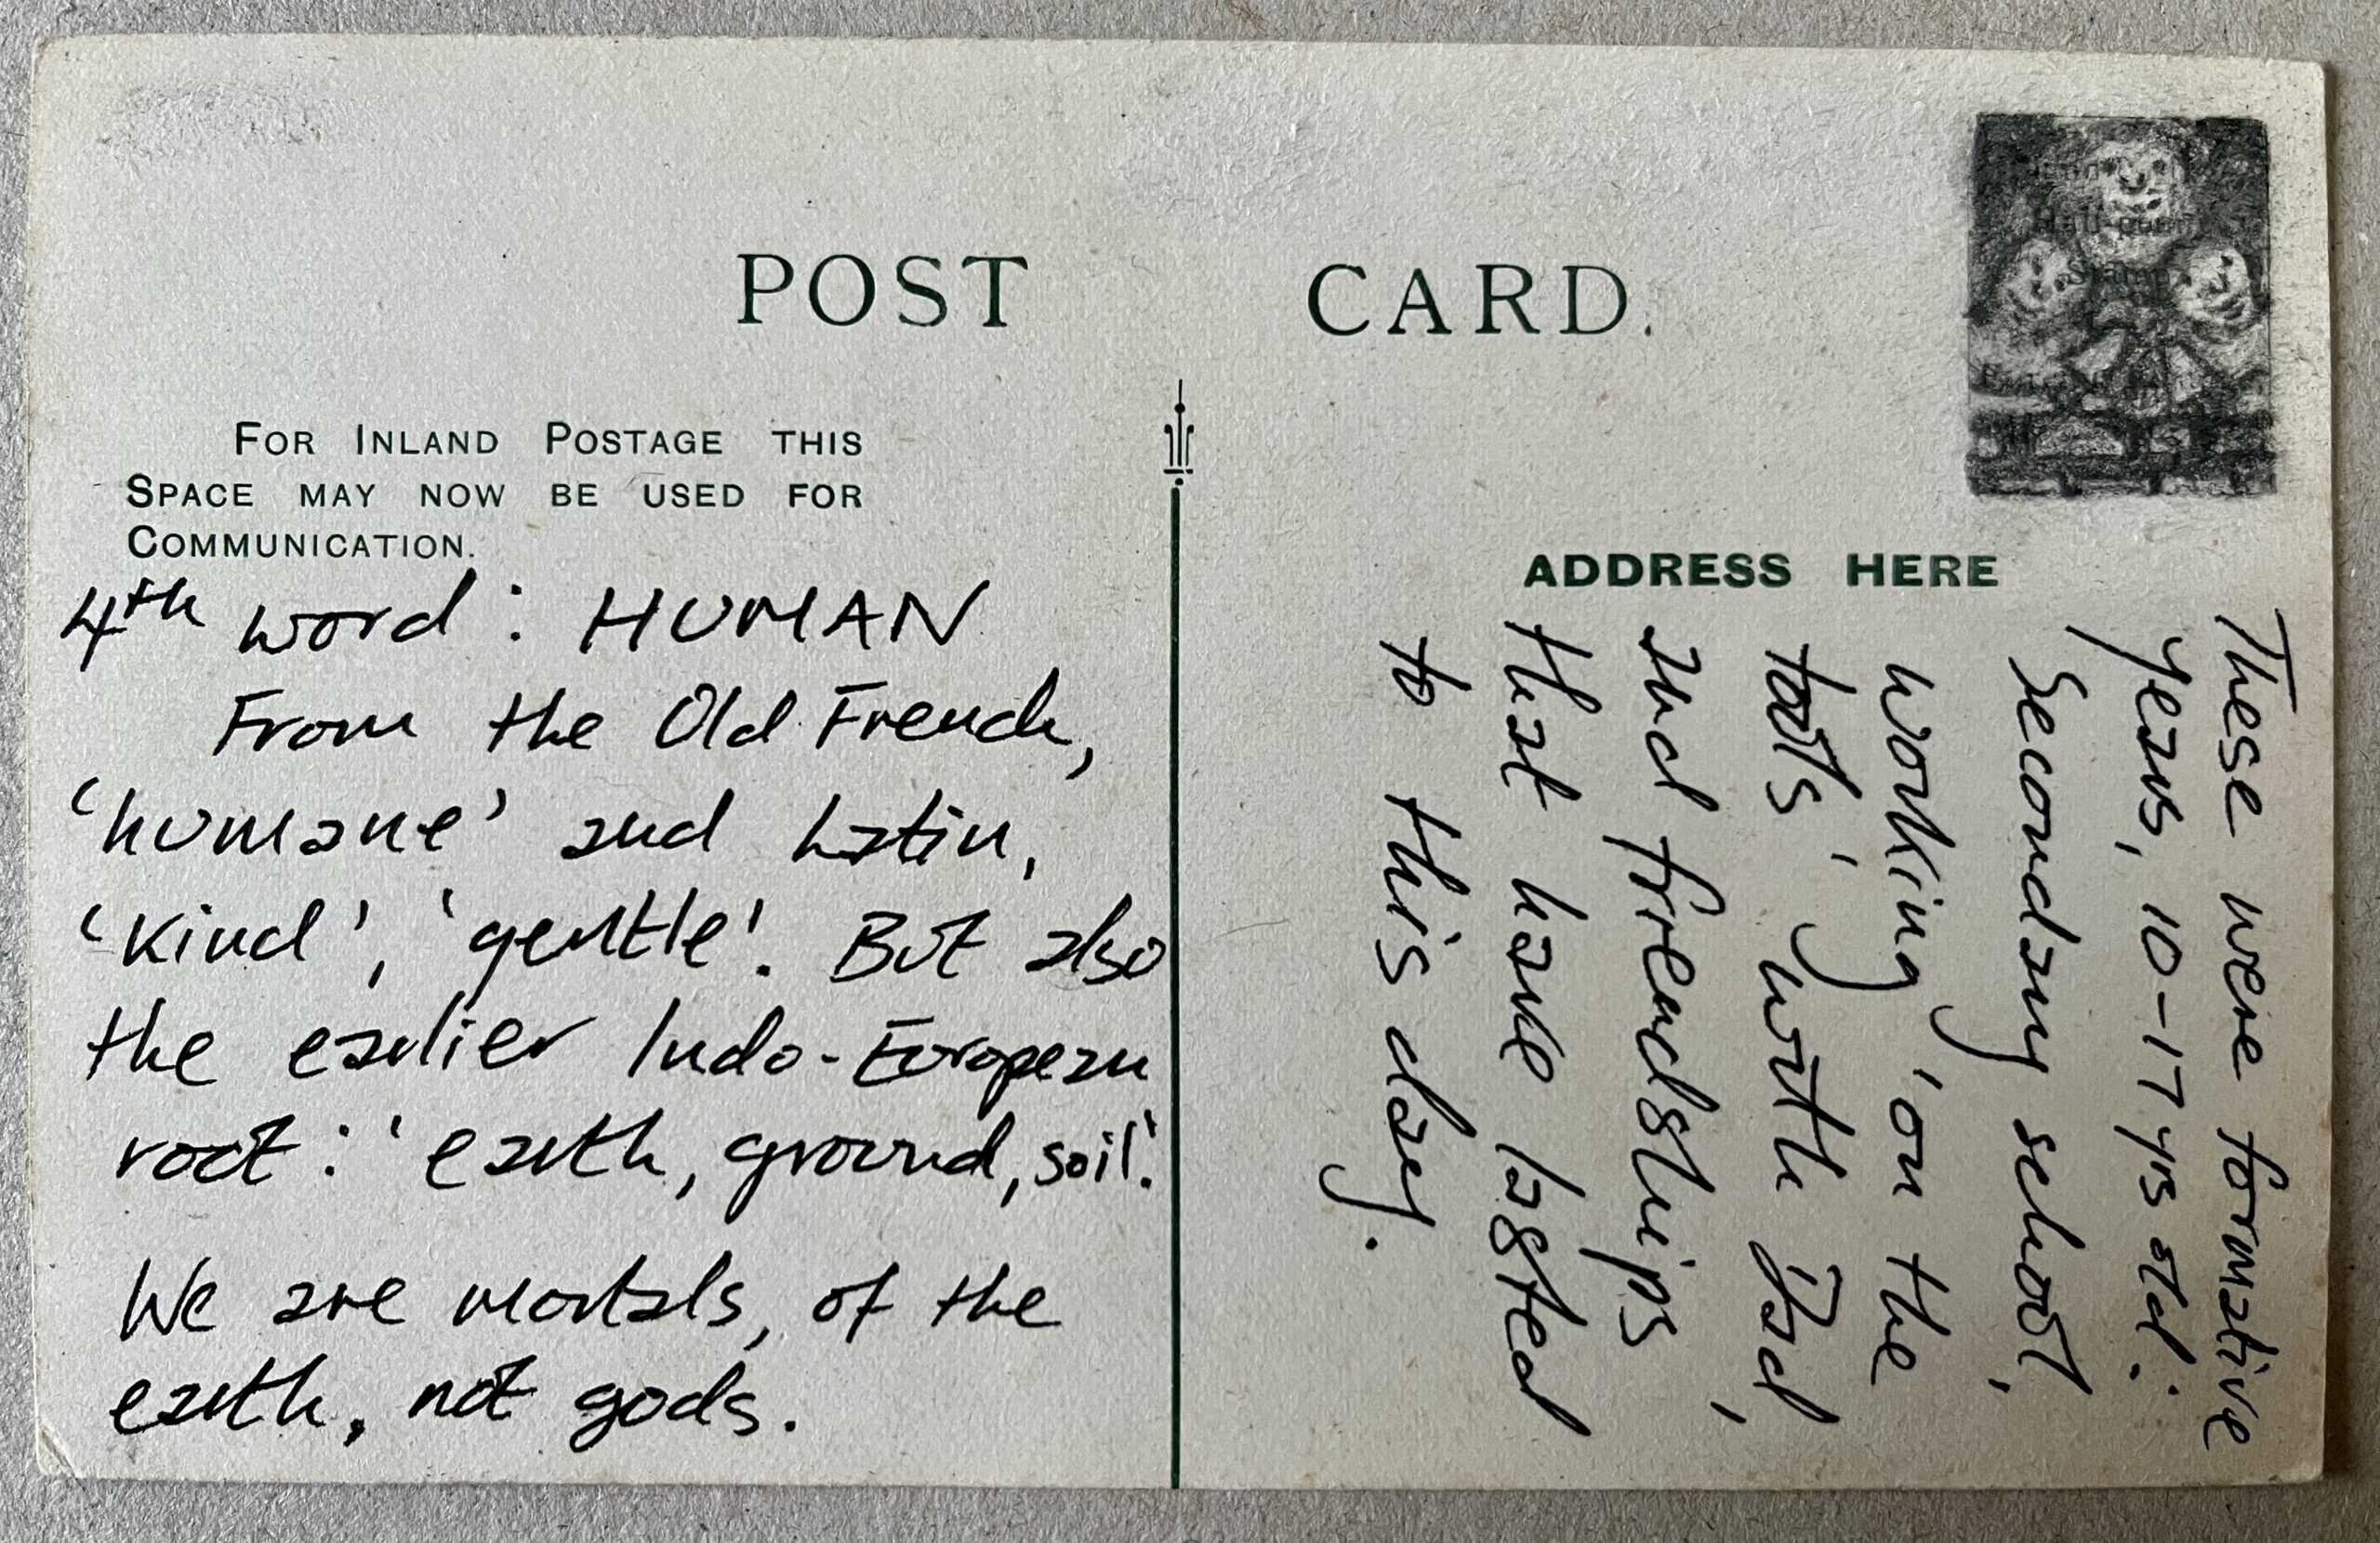 POST CARD.
FOR INLAND POSTAGE THIS
SPACE MAY NOW BE USED FOR
COMMUNICATION.
4th word: HUMAN
From the Old French,
'humane' and Latin,
'kind', 'gentle'. But also
the earlier Indo-European
root: 'earth, ground, soil'.
We are mortals, of the
earth, not gods.
Half-penny
Stamp
ADDRESS HERE
These were formative
years, 10-17 yrs old:
Secondary school,
working 'on the
tools', with Dad,
and friendships
that have lasted
to this day.